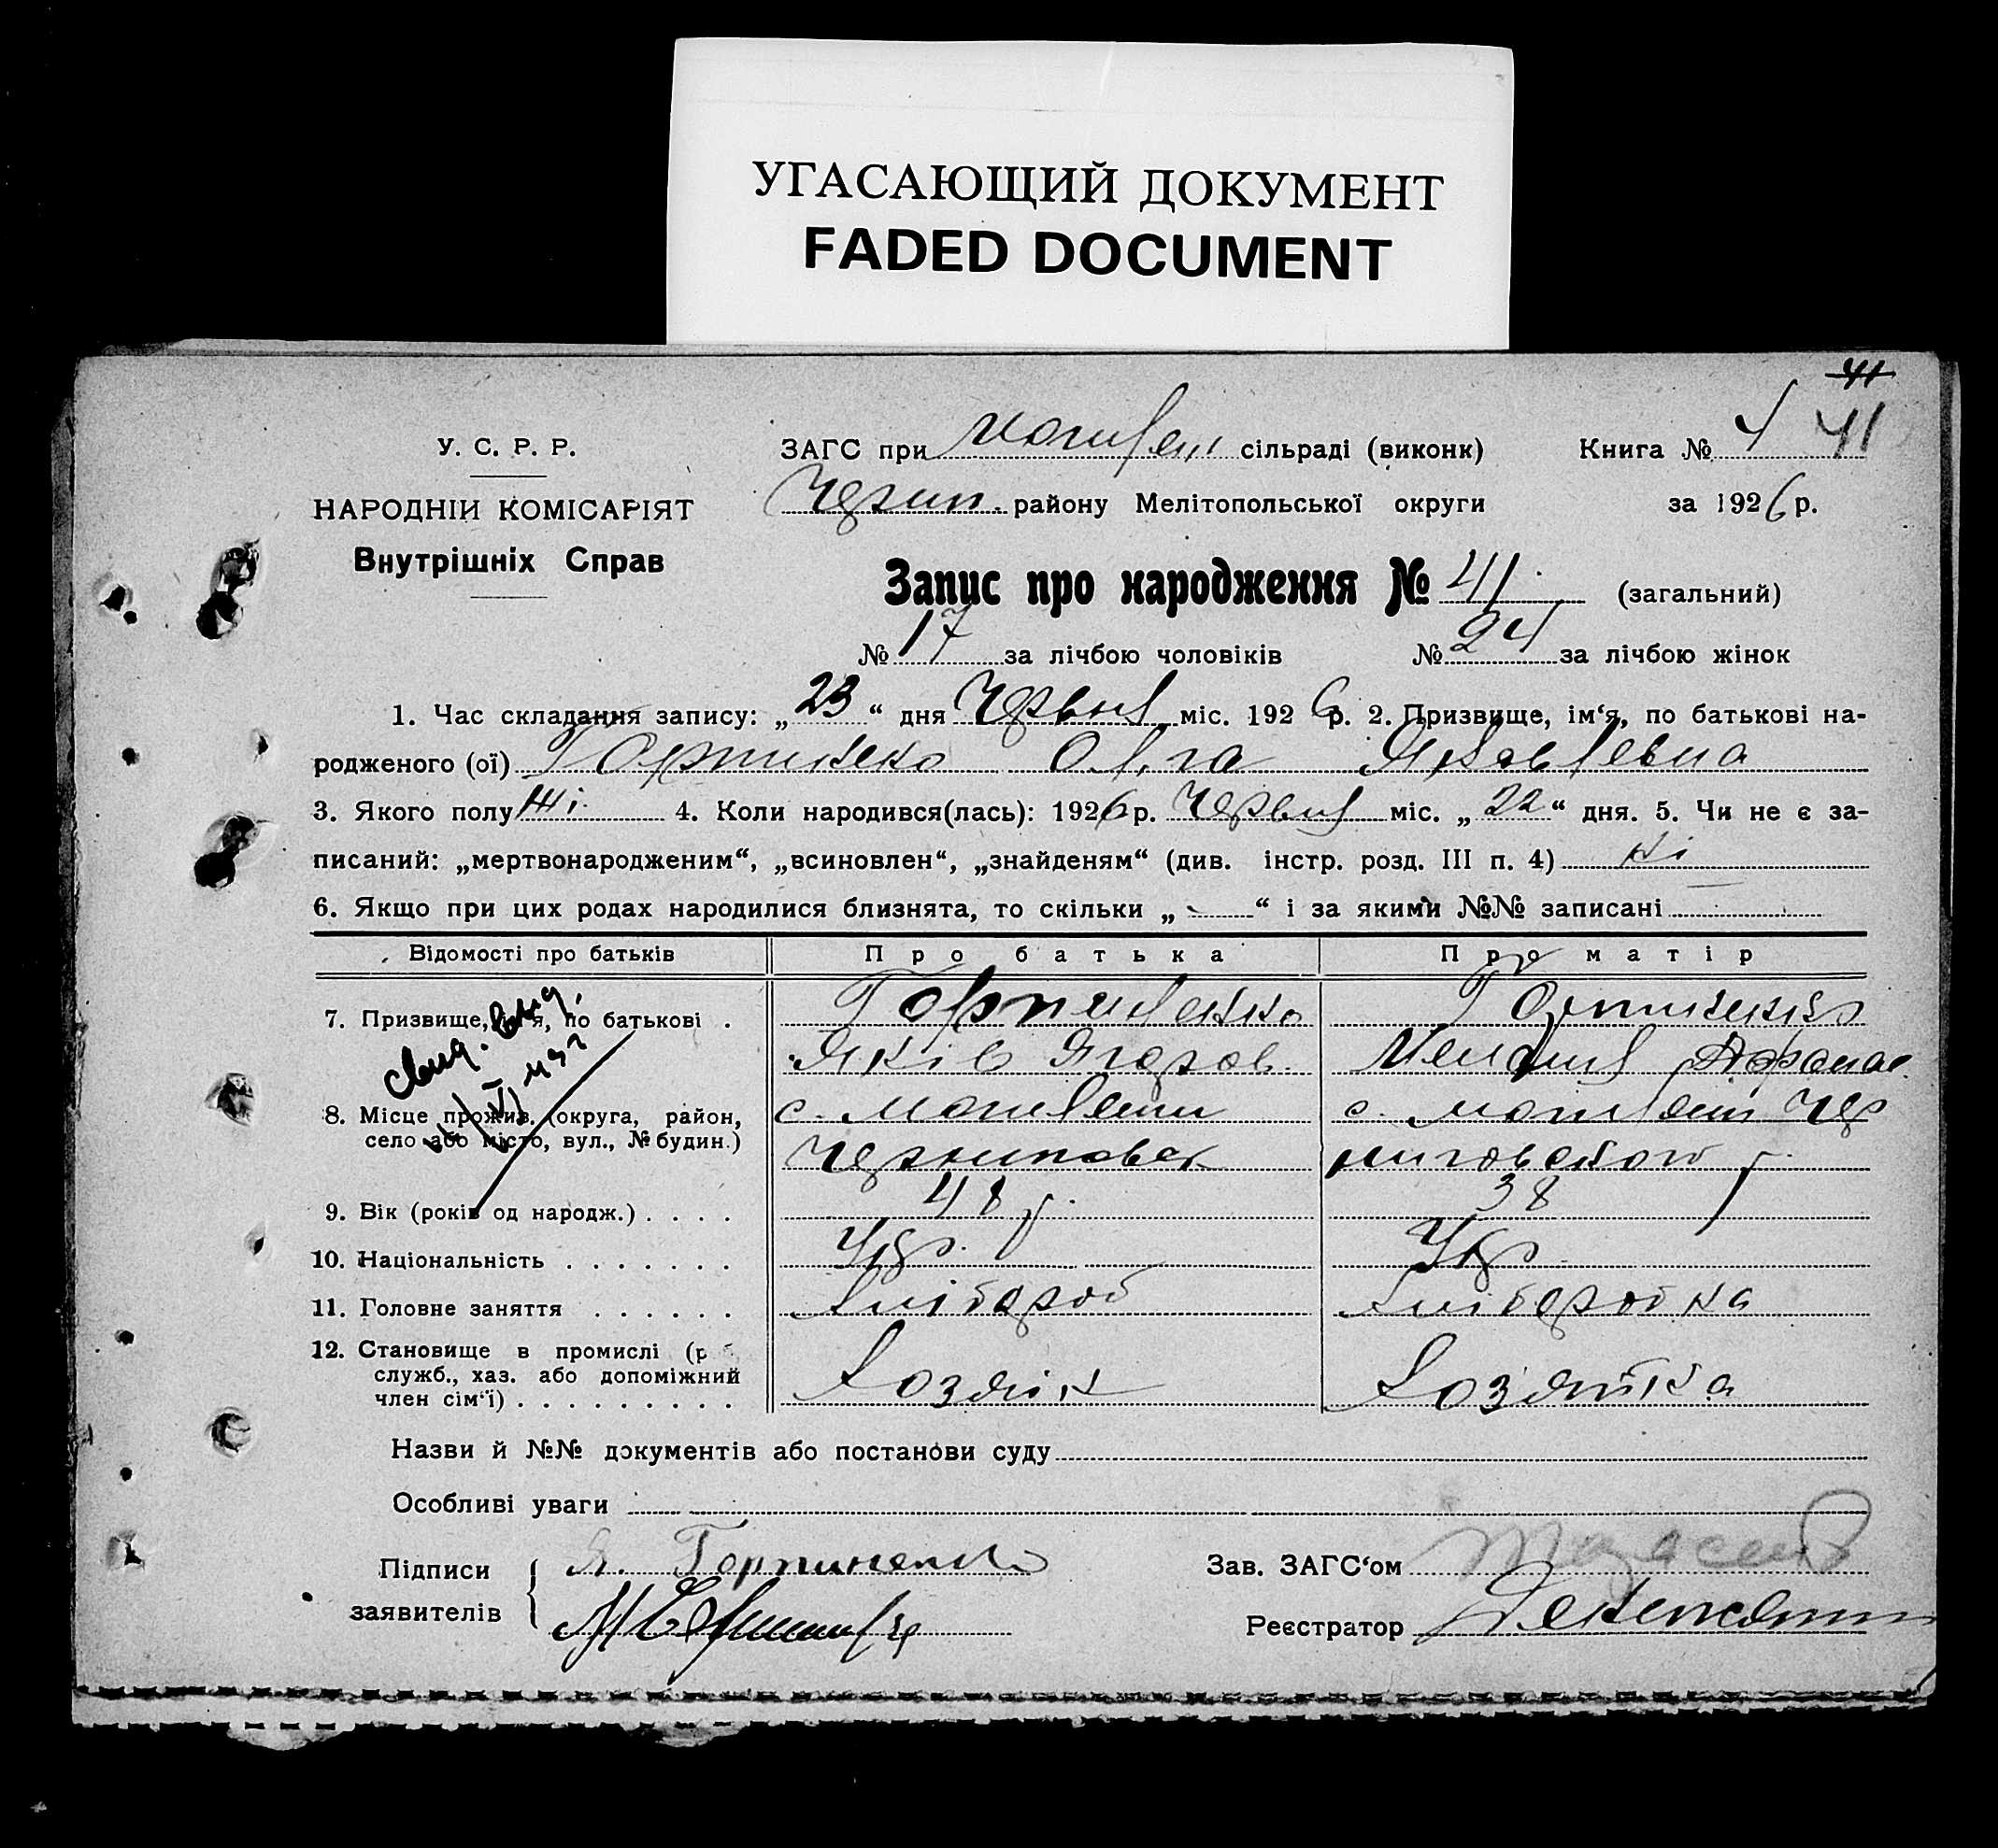 УГАСАЮЩИЙ ДОКУМЕНТ
FADED DOCUMENT
41
41
У. С. Р. Р.
ЗАГС при сільраді (виконк) Книга №
НАРОДНІЙ КОМІСАРІЯТ
району Мелітопольської округи за 1926 р.
Внутрішніх Справ
Запис про народження № 41. (загальний)
№ 17 за лічбою чоловіків № 24 за лічбою жінок
1. Час складання запису: „23“ дня Червня міс. 1926 р. 2. Призвище, ім‘я, по батькові на-
родженого (ої) Горпиненко Ольга Яковлевна
3. Якого полу жі. 4. Коли народився(лась): 1926 р. Червня міс. „22“ дня. 5. Чи не є за-
писаний: „мертвонародженим“, „всиновлен“, „знайденям“ (див. інстр. розд. III п. 4) Ні
6. Якщо при цих родах народилися близнята, то скільки „ “ і за якими №№ записані
Відомості про батьків Про батька Про матір
7. Призвище, ім‘я, по батькові . Горпиненко
Яків Ягоров.
8. Місце прожив. (округа, район,
село або місто, вул., № будин.)
9. Вік (років од народж.) . . . . 48 р. 38
10. Національність . . . . . . . Укр. Укр.
11. Головне заняття . . . . . . Хлібороб Хліборобка
12. Становище в промислі (р
служб., хаз. або допоміжний
член сім‘ї) . . . . . . . . . Хозяїн Хозяйка
Назви й №№ документів або постанови суду
Особливі уваги
Підписи Я. Горпиненко Зав. ЗАГС‘ом
заявителів Реєстратор